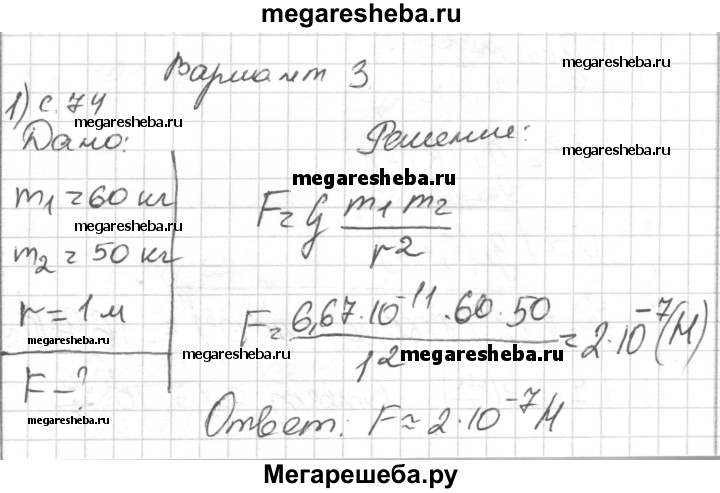 megaresheba.ru
Вариант 3
megaresheba.ru
1) с. 74
megaresheba.ru
Дано:
Решение:
megaresheba.ru
megaresheba.ru
m₁ = 60 кг
F = G m₁ m₂ / r²
megaresheba.ru
m₂ = 50 кг
r = 1 м
F = 6,67·10⁻¹¹·60·50 / 1² = 2·10⁻⁷ (Н)
megaresheba.ru
megaresheba.ru
megaresheba.ru
F - ?
megaresheba.ru
Ответ: F ≈ 2·10⁻⁷ Н
Мегарешеба.ру